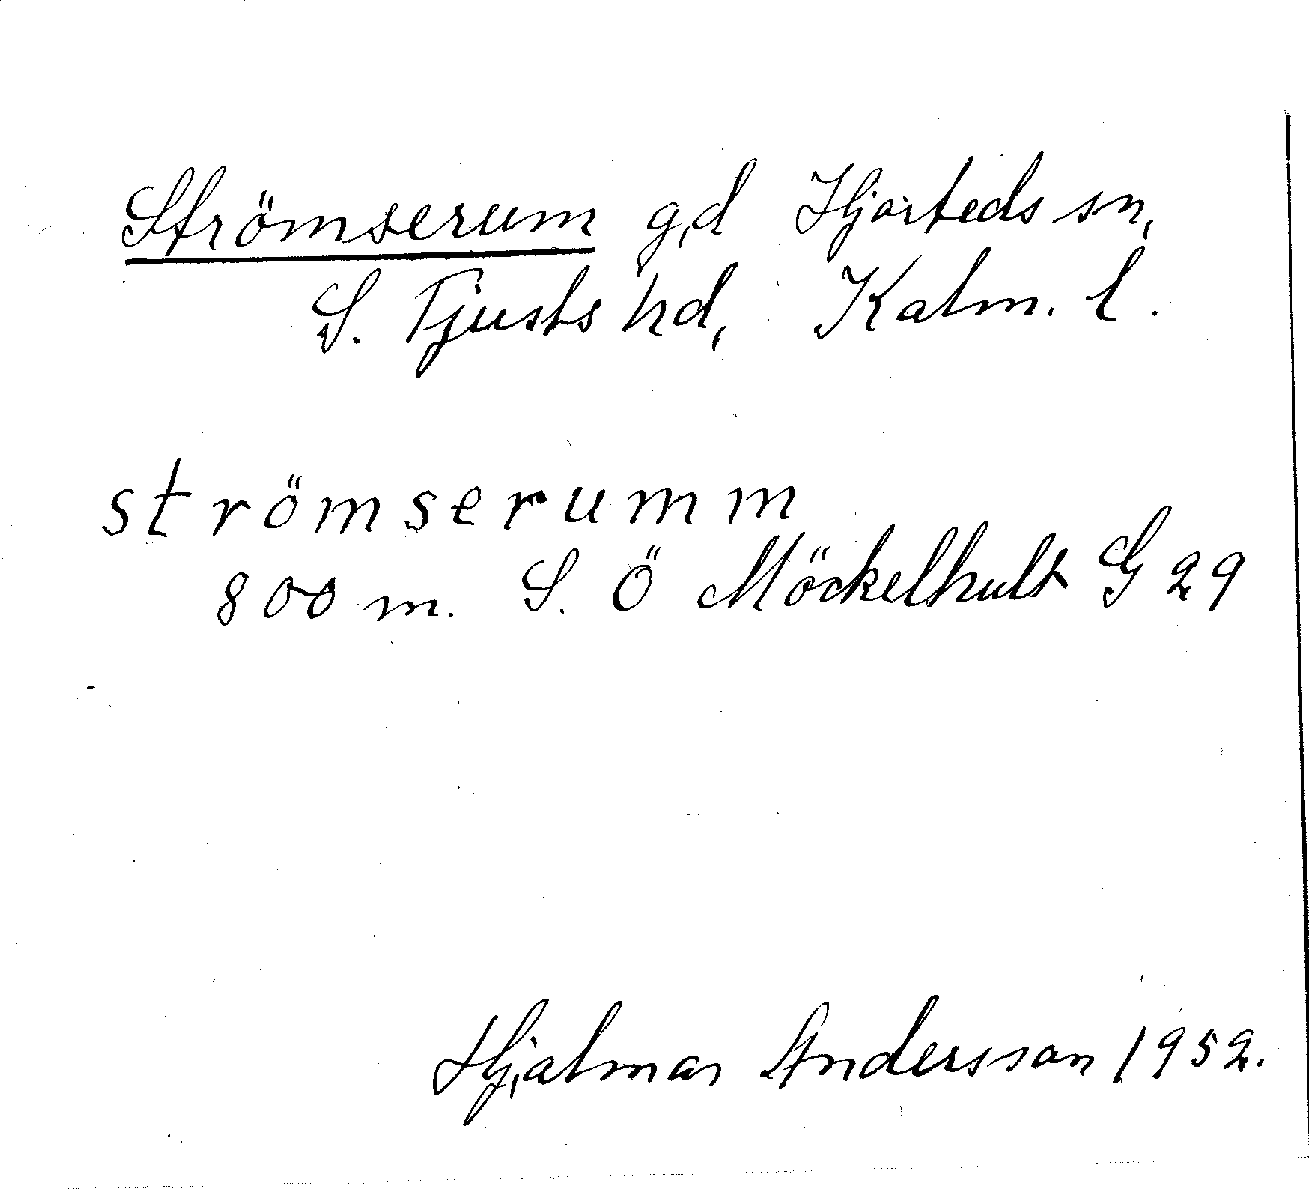 Strömserum gd Hjorteds sn,
S. Tjusts hd, Kalm. l.
strömserumm
800 m. S. Ö Möckelhult G 29
Hjalmar Andersson 1952.